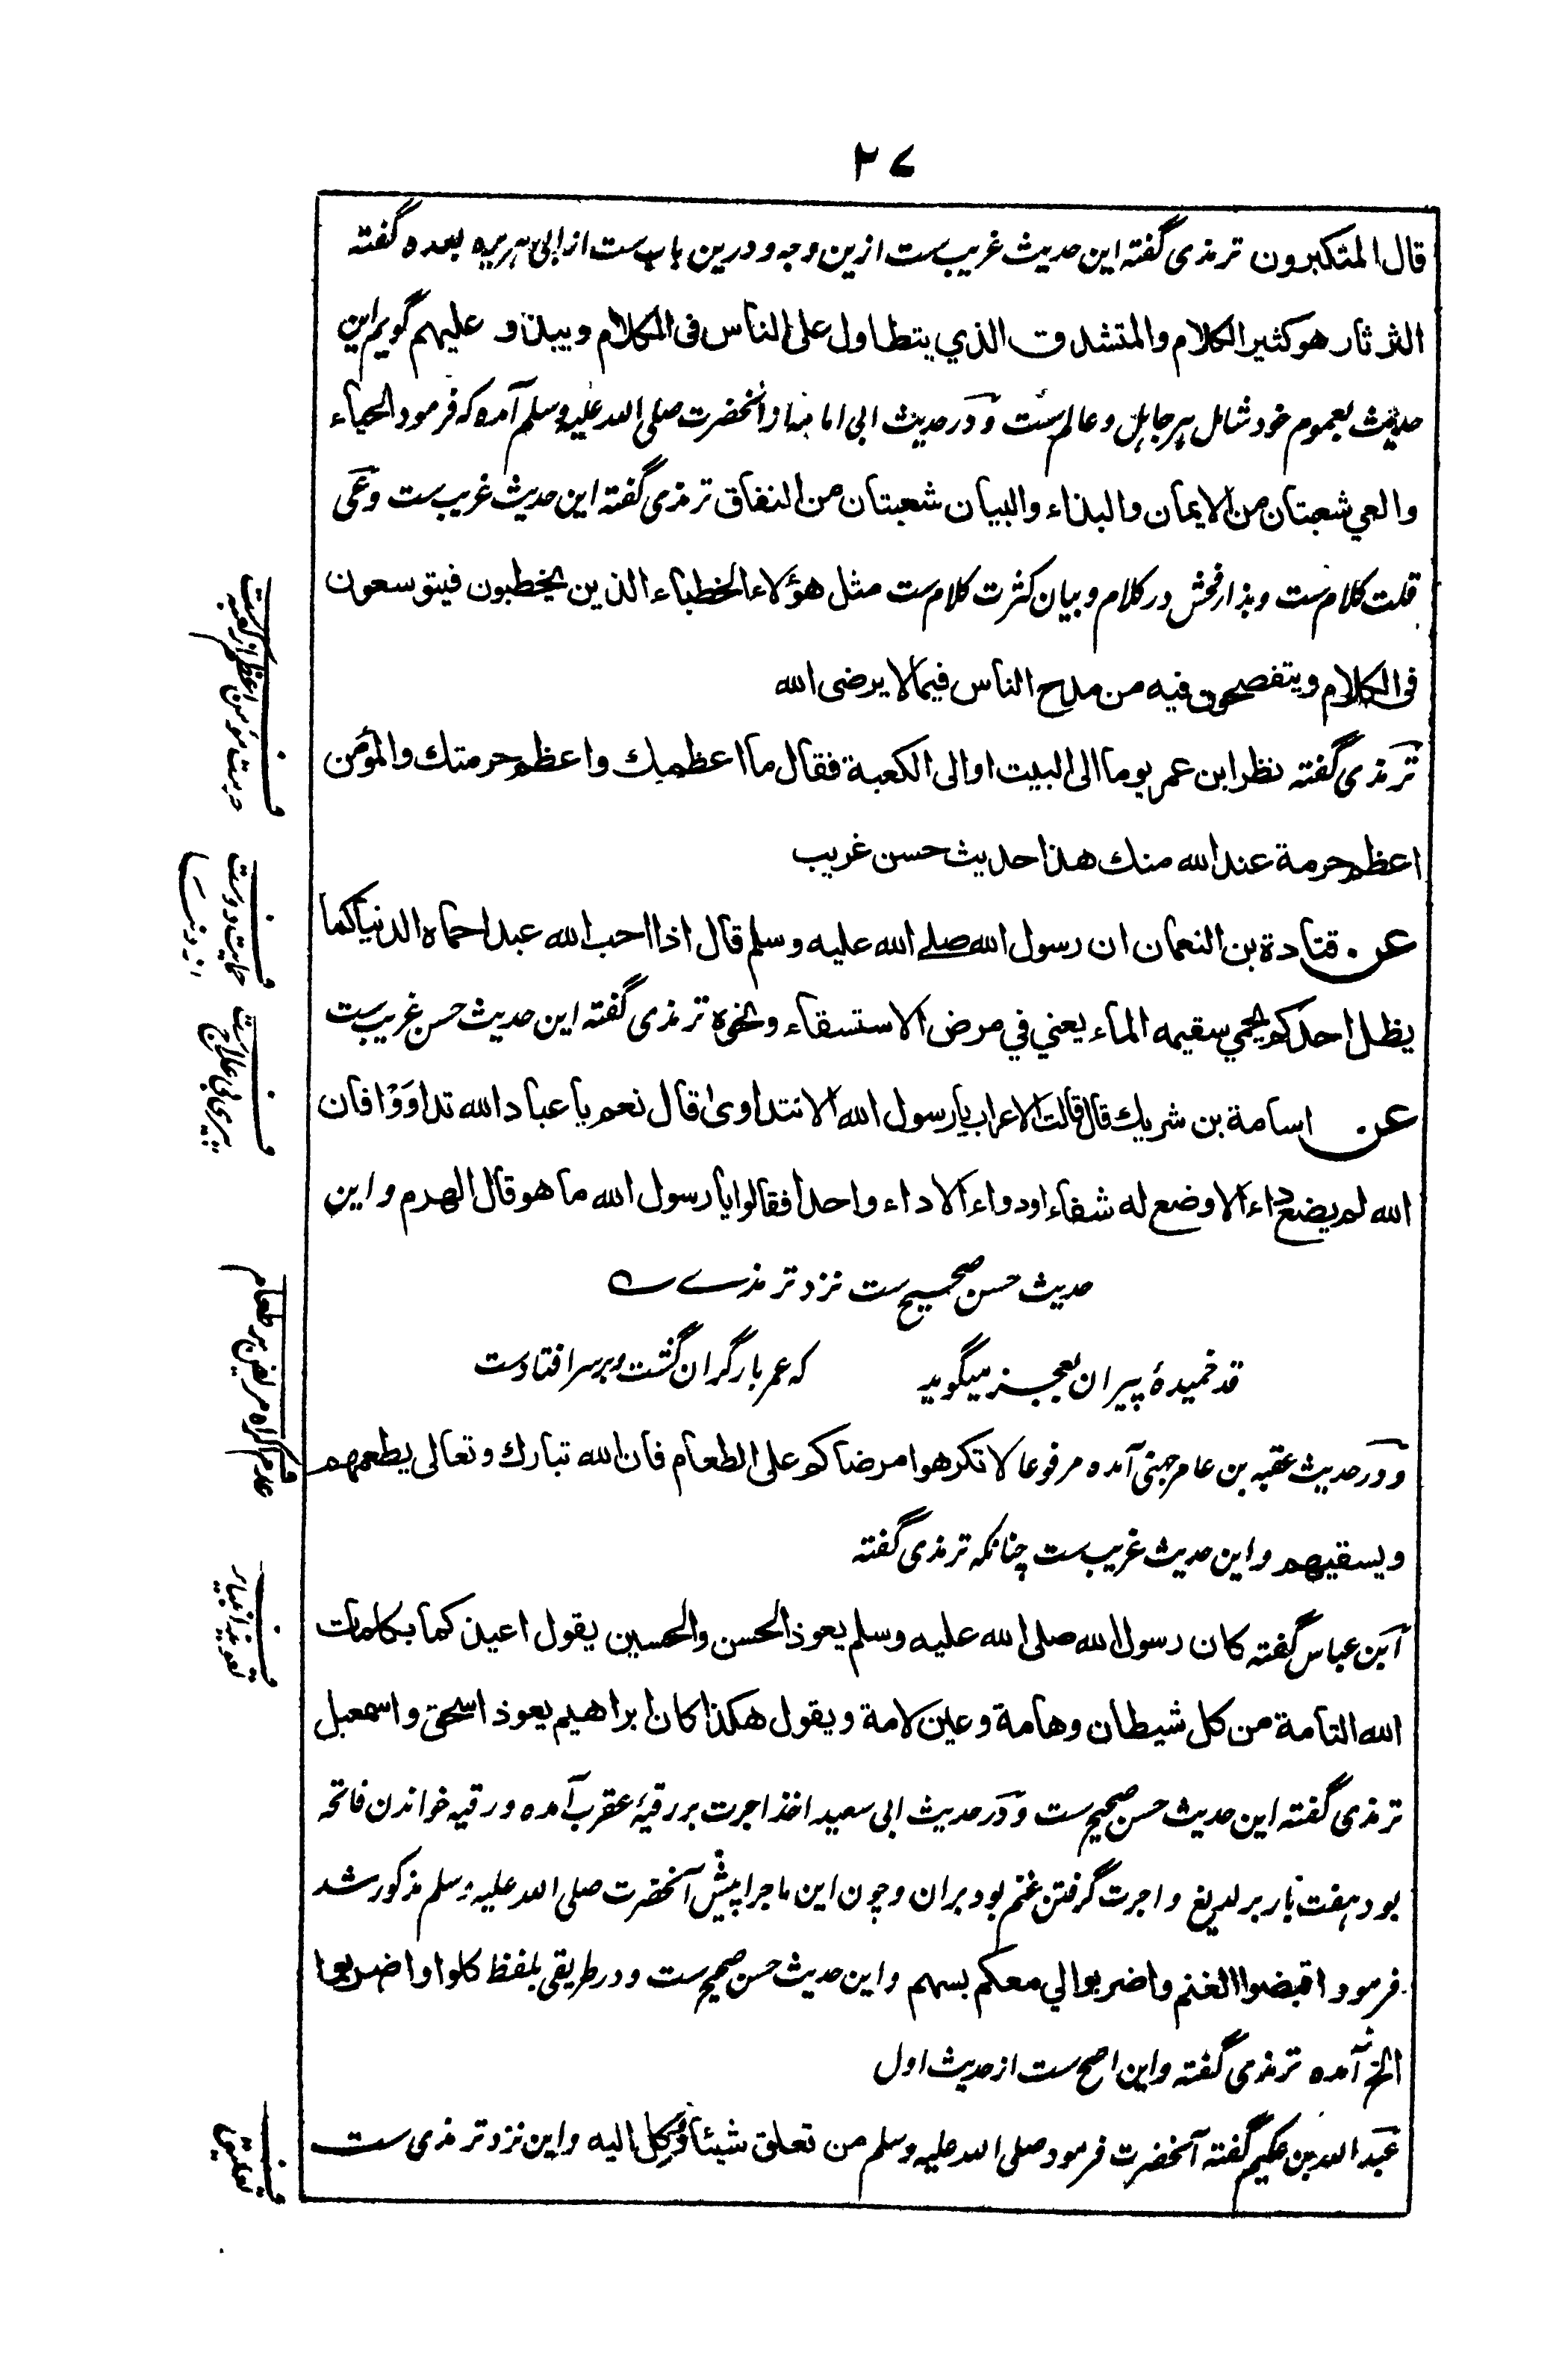 ۲۷
قال المتکبرون ترمذی گفته این حدیث غریب ست ازین وجه و درین باب ست از ابی هریره بعده گفته
الثرثار هو کثیر الکلام والمتشدق الذي یتطاول علی الناس فی الکلام ویبذو علیهم گویم این
حدیث بعموم خود شامل هر جاهل و عالم ست و در حدیث ابی امامه از آنحضرت صلی الله علیه وسلم آمده که فرمود الحیاء
والعي شعبتان من الایمان والبذاء والبیان شعبتان من النفاق ترمذی گفته این حدیث غریب ست وعی
قلت کلام ست و بذا فحش در کلام و بیان کثرت کلام ست مثل هؤلاء الخطباء الذین یخطبون فیتوسعون
فی الکلام ویتفصحون فیه من مدح الناس فیما لا یرضی الله
ترمذی گفته نظر ابن عمر یوما الی البیت او الی الکعبة فقال ما اعظمك واعظم حرمتك والمؤمن
اعظم حرمة عند الله منك هذا حدیث حسن غریب
عن قتادة بن النعمان ان رسول الله صلے الله علیه وسلم قال اذا احب الله عبدا حماه الدنیا کما
یظل احدکم یحمي سقیمه الماء یعني في مرض الاستسقاء ونحوه ترمذی گفته این حدیث حسن غریب ست
عن اسامة بن شریك قال قالت الاعراب یا رسول الله الا نتداوی قال نعم یا عباد الله تداوَوْا فان
الله لم یضع داء الا وضع له شفاء او دواء الا داء واحدا فقالوا یا رسول الله ما هو قال الهرم و این
حدیث حسن صحیح ست نزد ترمذے ؎
قد خمیدۀ پیران بعجز میگوید که عمر بار گران گشت و بر سر افتادست
و در حدیث عقبه بن عامر جهنی آمده مرفوعا لا تکرهوا مرضاکم علی الطعام فان الله تبارك وتعالی یطعمهم
ویسقیهم و این حدیث غریب ست چنانکه ترمذی گفته
ابن عباس گفته کان رسول الله صلی الله علیه وسلم یعوذ الحسن والحسین یقول اعیذکما بکلمات
الله التامة من کل شیطان وهامة وعین لامة ویقول هکذا کان ابراهیم یعوذ اسحق واسمعیل
ترمذی گفته این حدیث حسن صحیح ست و در حدیث ابی سعید اخذ اجرت بر رقیۀ عقرب آمده و رقیه خواندن فاتحه
بود هفت بار بر لدیغ و اجرت گرفتن غنم بود بران و چون این ماجرا پیش آنحضرت صلی الله علیه وسلم مذکور شد
فرمود اقبضوا الغنم واضربوا لي معکم بسهم و این حدیث حسن صحیح ست و در طریقی بلفظ کلوا واضربوا
الخ آمده ترمذی گفته و این اصح ست از حدیث اول
عبد الله بن عکیم گفته آنحضرت فرمود صلی الله علیه وسلم من تعلق شیئا وکل الیه و این نزد ترمذی ست
حرمت مؤمن اعظم از کعبه است
حمایت دوست از دنیا
پیری بی علاج ست
عدم اکراه مریض بر طعام
تعویذ
تعلیق